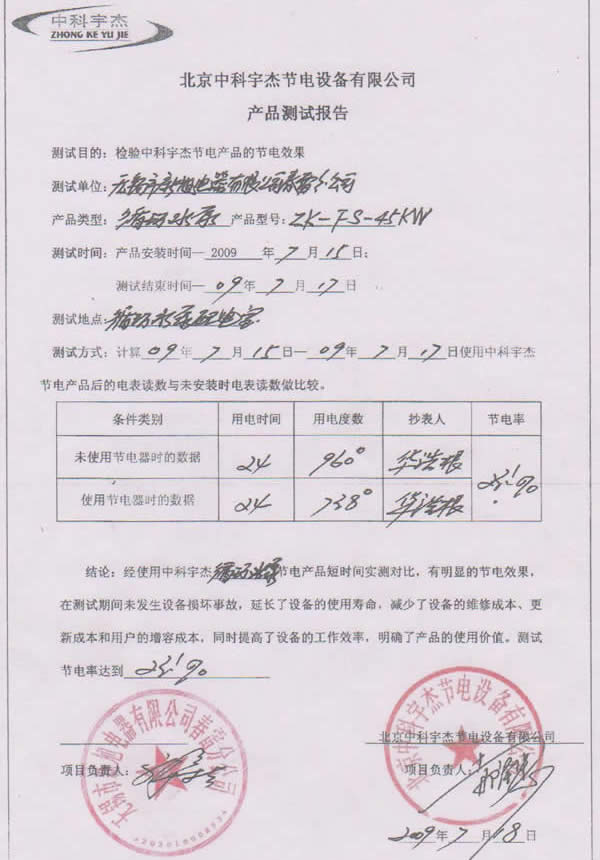 中科宇杰
ZHONG KE YU JIE
北京中科宇杰节电设备有限公司
产品测试报告
测试目的：检验中科宇杰节电产品的节电效果
测试单位：无锡市新旭电器有限公司春雷分公司
产品类型：循环水泵 产品型号：ZK-FS-45KW
测试时间：产品安装时间— 2009 年 7 月 15 日；
测试结束时间— 09 年 7 月 17 日
测试地点：循环水泵配电室
测试方式：计算 09 年 7 月 15 日— 09 年 7 月 17 日使用中科宇杰
节电产品后的电表读数与未安装时电表读数做比较。
条件类别 用电时间 用电度数 抄表人 节电率
未使用节电器时的数据 24 960° 华浩根
使用节电器时的数据 24 738° 华浩根
23.1%
结论：经使用中科宇杰循环水泵节电产品短时间实测对比，有明显的节电效果，
在测试期间未发生设备损坏事故，延长了设备的使用寿命，减少了设备的维修成本、更
新成本和用户的增容成本，同时提高了设备的工作效率，明确了产品的使用价值。测试
节电率达到 23.1%
北京中科宇杰节电设备有限公司
项目负责人： 项目负责人：
2009年 7 月 18 日
北京中科宇杰节电设备有限公司